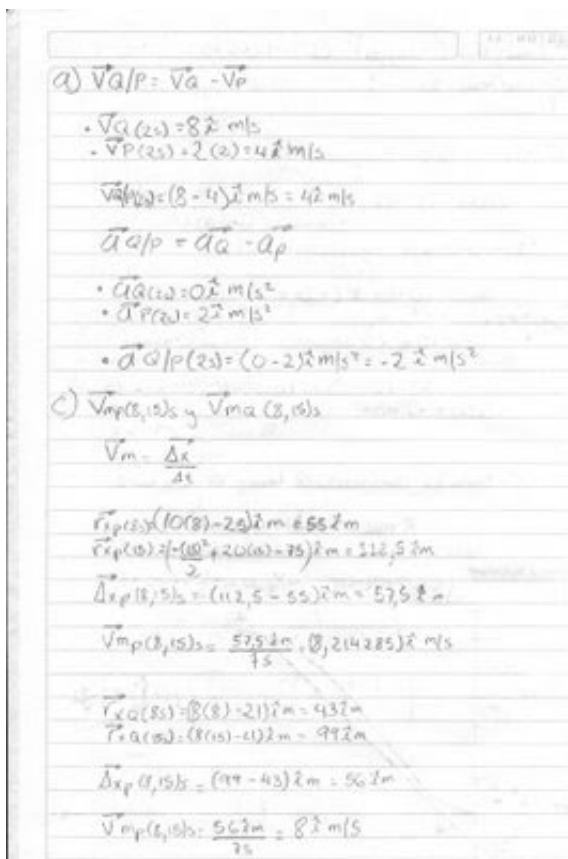 a) V⃗Q/P = V⃗Q - V⃗P
• V⃗Q(2s) = 8î m/s
• V⃗P(2s) = 2(2) = 4î m/s
V⃗Q/P(2s) = (8 - 4)î m/s = 4î m/s
a⃗Q/P = a⃗Q - a⃗P
• a⃗Q(2s) = 0î m/s²
• a⃗P(2s) = 2î m/s²
• a⃗Q/P(2s) = (0 - 2)î m/s² = -2 î m/s²
c) V⃗mp(8,15)s y V⃗mQ(8,15)s
V⃗m = Δx⃗/Δt
r⃗xp(8s) = (10(8) - 25)î m = 55î m
r⃗xp(15) = (-(15)²/2 + 20(15) - 75)î m = 112,5 î m
Δ⃗xp(8,15)s = (112,5 - 55)î m = 57,5 î m
V⃗mp(8,15)s = 57,5 î m/7s = (8,214285)î m/s
r⃗xQ(8s) = (8(8) - 21)î m = 43î m
r⃗xQ(15s) = (8(15) - 21)î m = 99î m
Δ⃗xp(8,15)s = (99 - 43)î m = 56 î m
V⃗mp(8,15)s = 56 î m/7s = 8î m/s